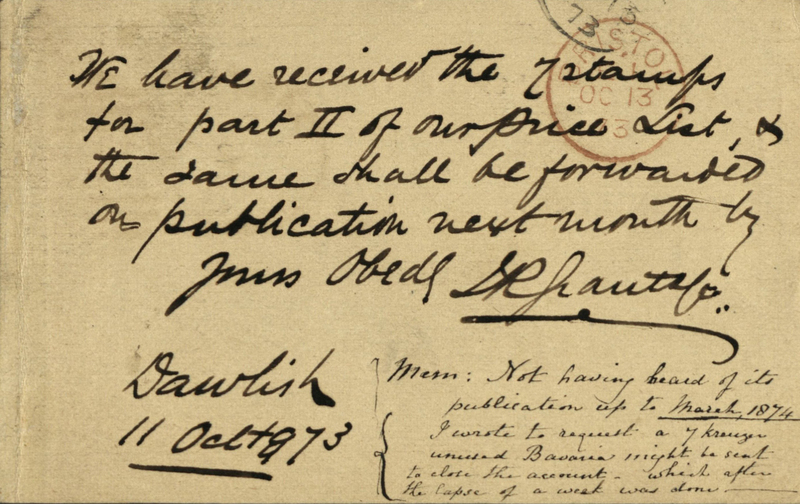 73
BRISTO
OC 13
73
We have received the 7 stamps
for part II of our Price List, &
the same shall be forwarded
on publication next month by
yours Obedt
Dawlish
11 Oct 1973
Mem: Not having heard of its
publication up to March, 1874
I wrote to request a 7 kreuzer
unused Bavaria might be sent
to close the account – which after
the lapse of a week was done —